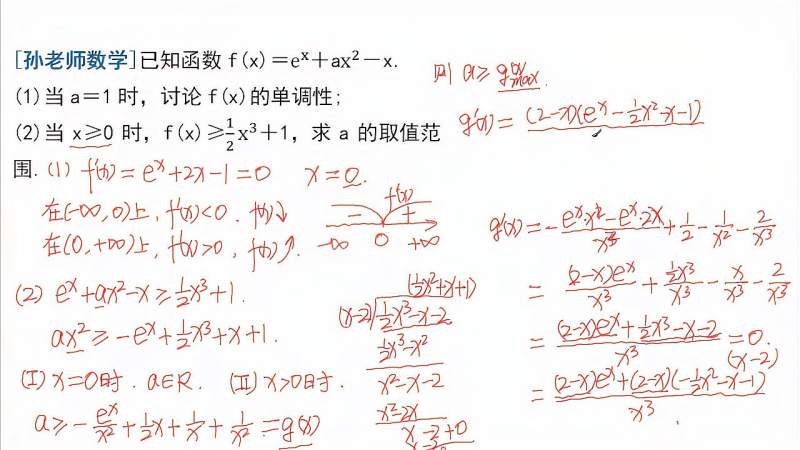 [孙老师数学]已知函数 f(x)=eˣ+ax²-x.
(1)当 a=1 时，讨论 f(x)的单调性；
(2)当 x≥0 时，f(x)≥1/2x³+1，求 a 的取值范
围.
(1) f'(x)=eˣ+2x-1=0 x=0.
在(-∞,0)上，f'(x)<0. f(x)↓
在(0,+∞)上，f'(x)>0, f(x)↑.
f'(x)
- +
-∞ 0 +∞
(2) eˣ+ax²-x≥1/2x³+1.
ax²≥-eˣ+1/2x³+x+1.
(Ⅰ) x=0时. a∈R. (Ⅱ) x>0时.
a≥-eˣ/x²+1/2x+1/x+1/x²=g(x)
(1/2x²+x+1)
(x-2)√1/2x³-x-2
1/2x³-x²
x²-x-2
x²-2x
x-2+0
则 a≥g(x)max.
g'(x)=(2-x)(eˣ-1/2x²-x-1)
g'(x)=-eˣ·x²-eˣ·2x/x³+1/2-1/x²-2/x³
=(2-x)eˣ/x³+1/2x³/x³-x/x³-2/x³
=(2-x)eˣ+1/2x³-x-2/x³=0.
(x-2)
=(2-x)eˣ+(2-x)(-1/2x²-x-1)/x³